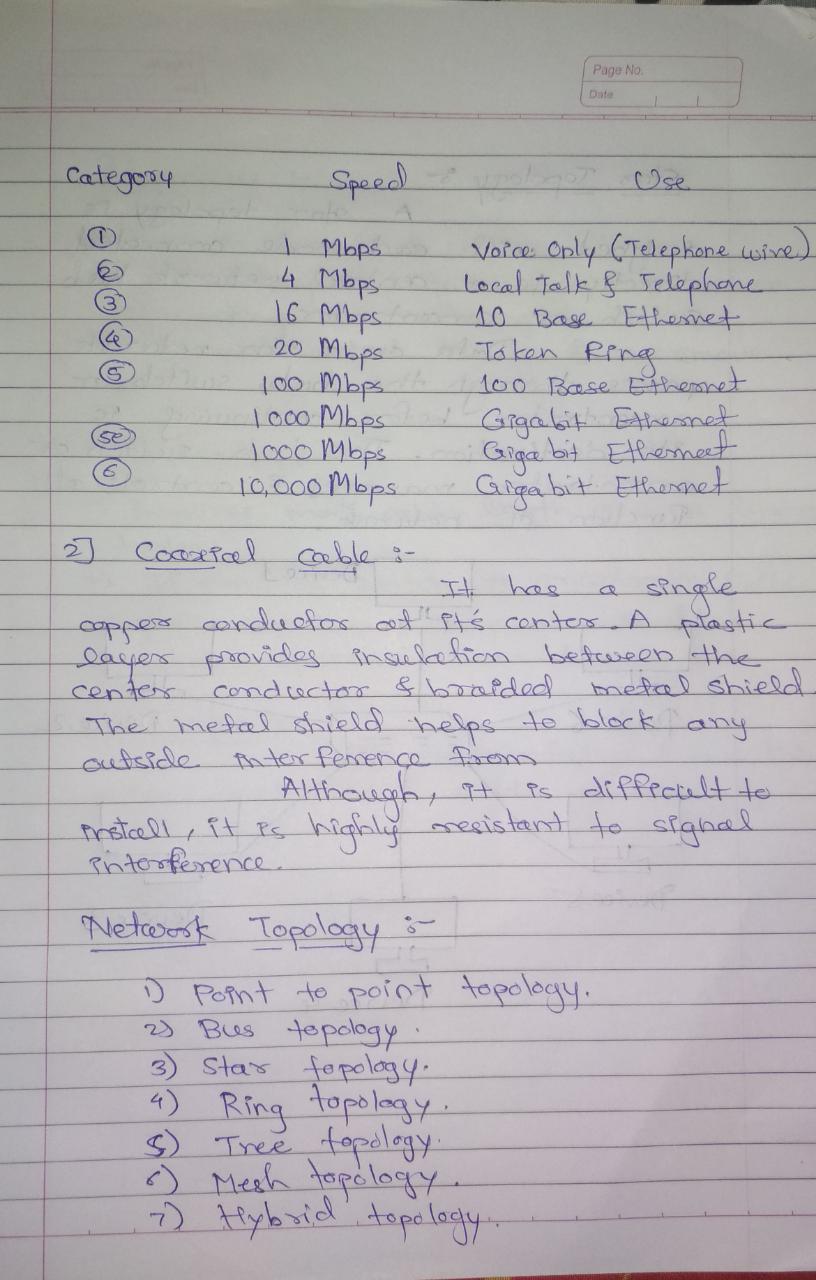 Page No.
Date
Category Speed Use
① 1 Mbps Voice Only (Telephone wire)
② 4 Mbps Local Talk & Telephone
③ 16 Mbps 10 Base Ethernet
④ 20 Mbps Token Ring
⑤ 100 Mbps 100 Base Ethernet
1000 Mbps Gigabit Ethernet
5e 1000 Mbps Gigabit Ethernet
⑥ 10,000 Mbps Gigabit Ethernet
2] Coaxial cable :-
It has a single
copper conductor at it's center. A plastic
layer provides insulation between the
center conductor & braided metal shield
The metal shield helps to block any
outside interference from
Although, it is difficult to
install, it is highly resistant to signal
interference.
Network Topology :-
1) Point to point topology.
2) Bus topology.
3) Star topology.
4) Ring topology.
5) Tree topology.
6) Mesh topology.
7) Hybrid topology.